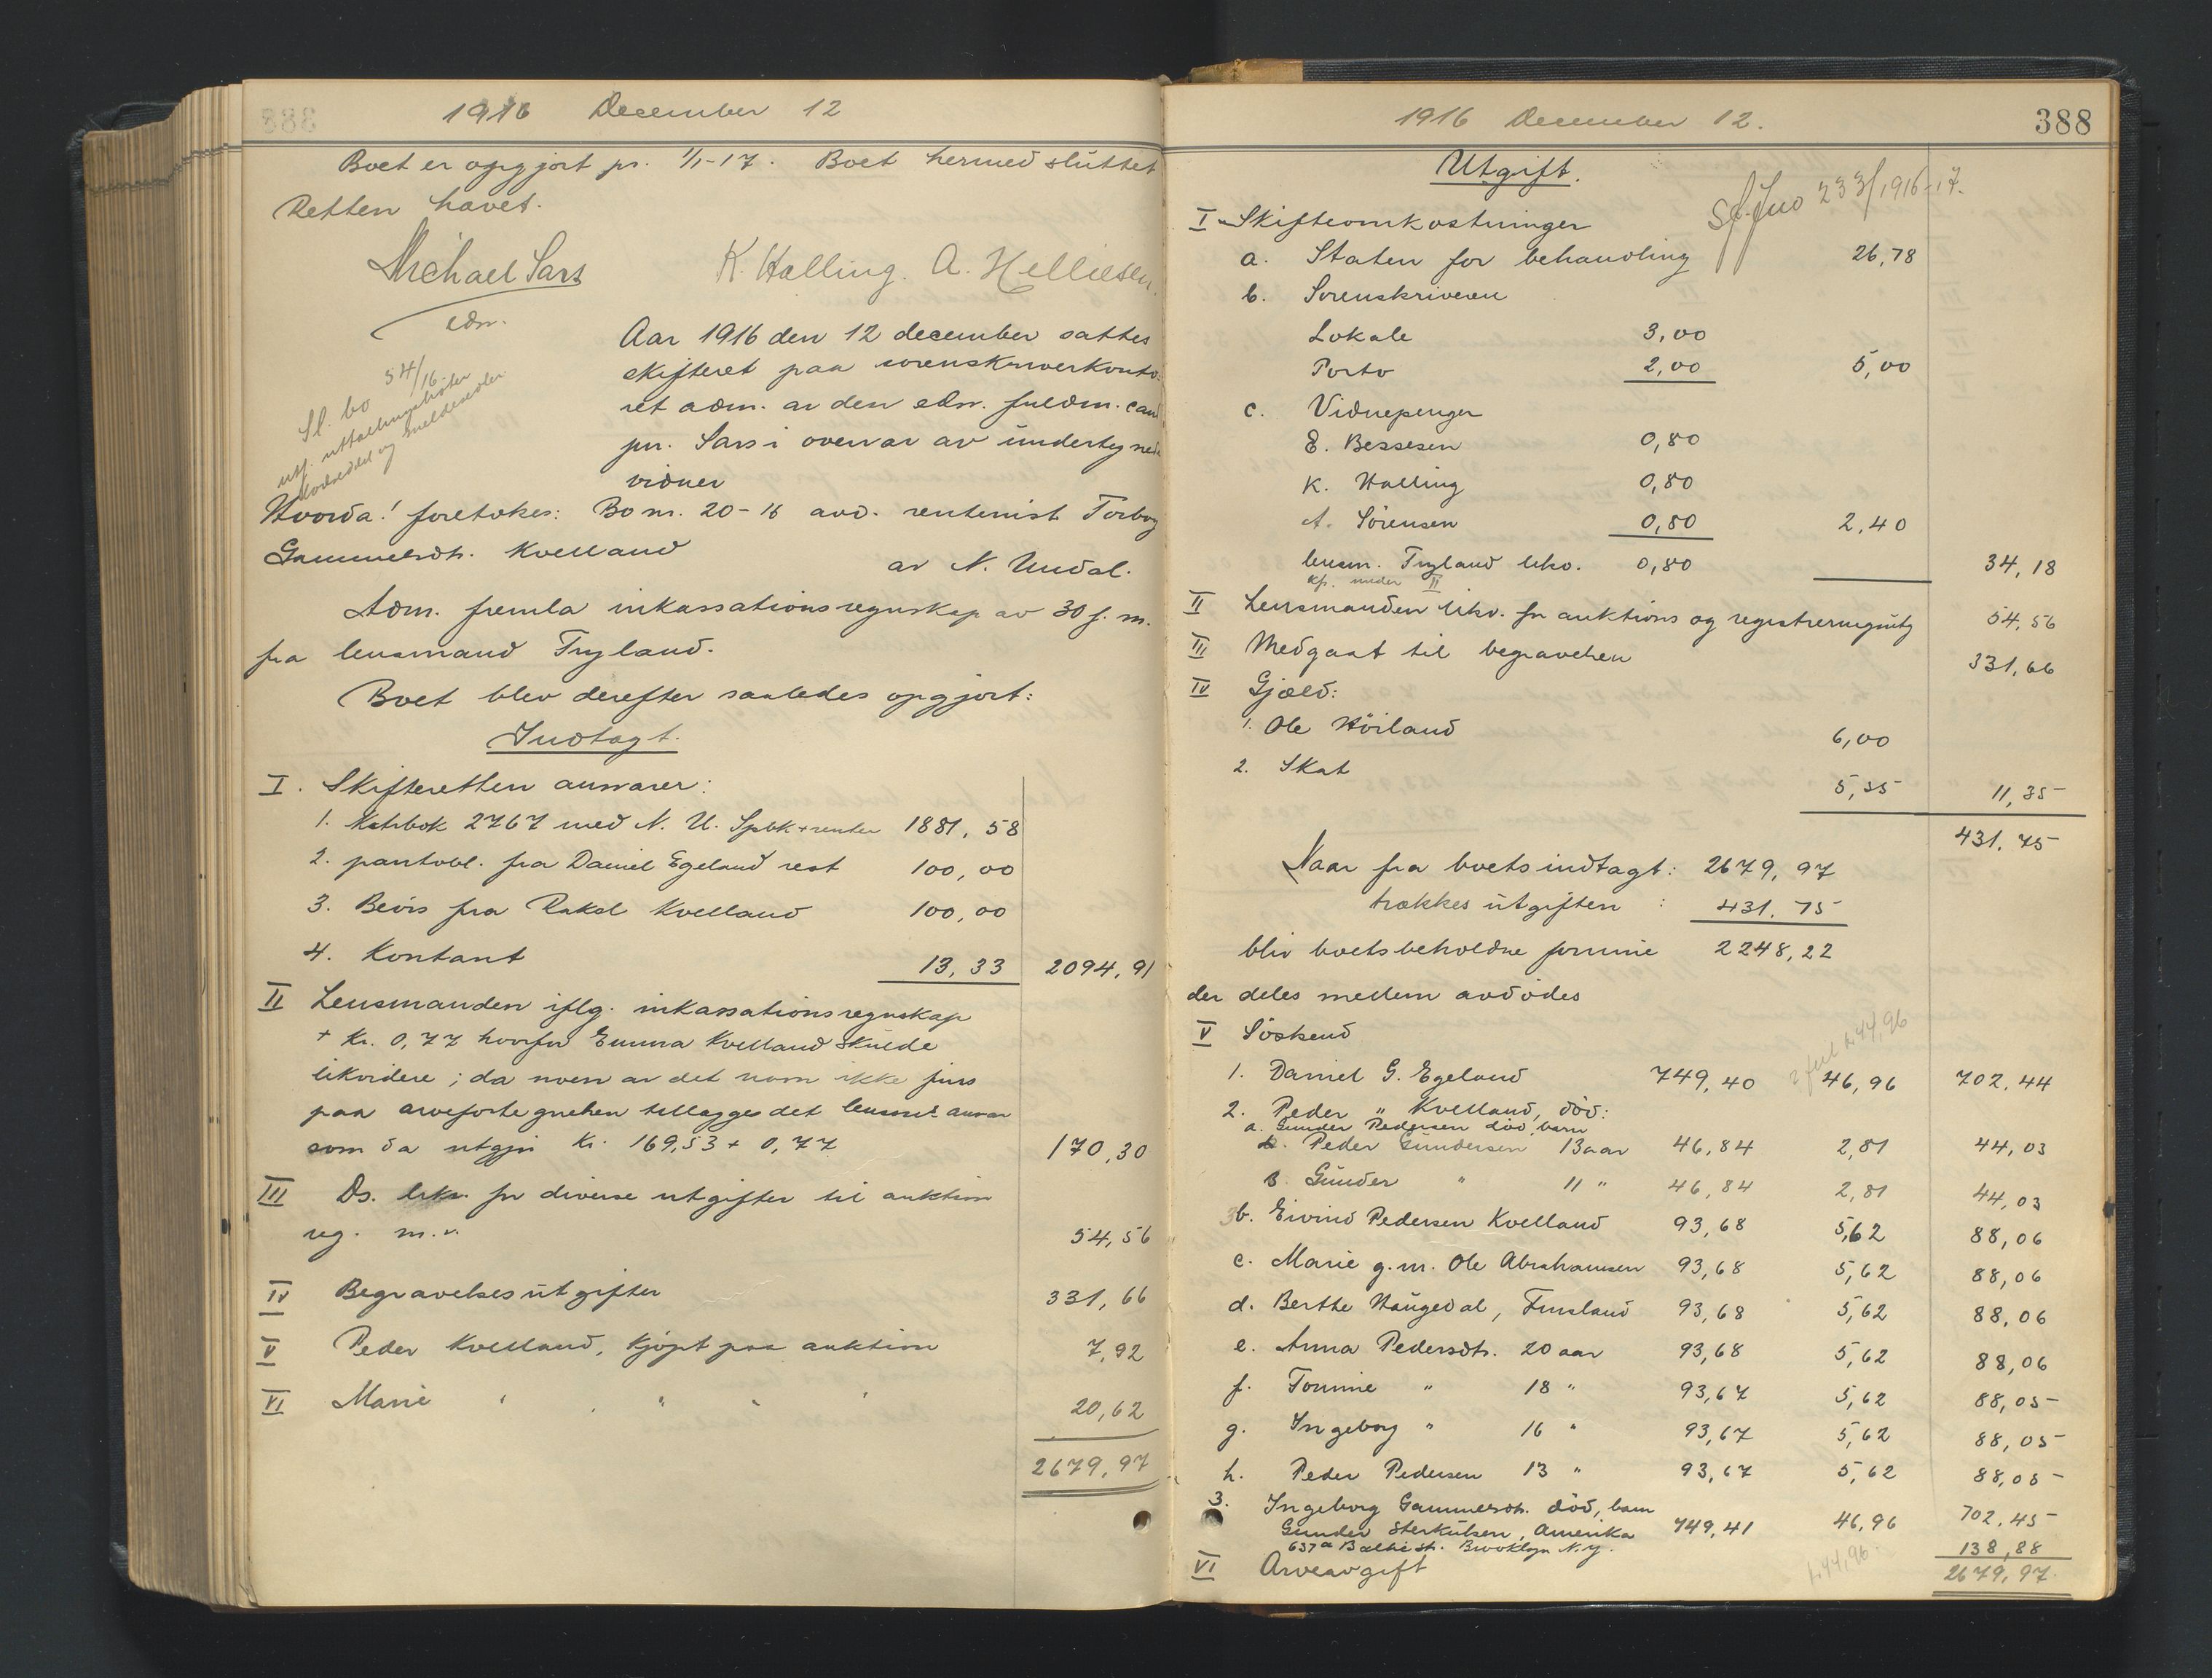 1916 December 12
Boet er opgjort pr. 1/1-17. Boet hermed sluttet
Retten hævet.
Michael Sars K. Halling. A. Helliesen.
edsv.
Sl. bo 54/16
Aar 1916 den 12 december sattes
skifteret paa sorenskriverkonto-
ret adm. av den edsv. fuldm. cand
jur. Sars i overvær av undertegnede
vidner
Hvorda! foretokes: Bo nr. 20-16 avd. rentenist Torborg
Gammelsdtr. Kvelland
av N. Undal.
Adm. fremla inkassationsregnskap av 30 f. m.
fra lensmand Tryland.
Boet blev derefter saaledes opgjort:
Indtægt.
I. Skifteretten ansvarer:
1. Kstrbok 2767 med N. U. Spbk + renter 1881,58
2. pantobl. fra Daniel Egeland rest 100,00
3. Bevis fra Rakel Kvelland 100,00
4. Kontant 13,33 2094,91
II Lensmanden iflg. inkassationsregnskap
+ Kr. 0,77 hvorfor Emma Kvelland skulde
likvidere; da noen av det navn ikke fins
paa arvefortegnelsen tillægges det lensms ansvar
som da utgjør kr. 169,53 + 0,77 170,30
III Ds. likv. for diverse utgifter til auktion
reg. m.v. 54,56
IV Begravelsesutgifter 331,66
V Peder Kvelland, kjøpt paa auktion 7,92
VI Marie " " " " 20,62
2679,97
1916 December 12.
388
Utgift.
Sf. Jno 233/1916-17.
I Skifteomkostninger
a. Staten for behandling 26,78
b. Sorenskriveren
Lokale 3,00
Porto 2,00 5,00
c. Vidnepenger
E. Bessesen 0,80
K. Halling 0,80
A. Sörensen 0,80 2,40
lensm. Tryland likv. 0,80 34,18
kfr. under II
II Lensmanden likv. for auktions og registreringsutg 54,56
III Medgaat til begravelsen 331,66
IV Gjæld:
1. Ole Höiland 6,00
2. Skat 5,35 11,35
431,75
Naar fra boets indtægt: 2679,97
trækkes utgiften : 431,75
blir boets beholdne formue 2248,22
der deles mellem avdödes
V Söskend
1. Daniel G. Egeland 749,40 46,96 702,44
2. Peder " Kvelland, död:
a. Gunder Pedersen död, barn
Peder Gundersen 13 aar 46,84 2,81 44,03
Gunder " 11 " 46,84 2,81 44,03
b. Eivind Pedersen Kvelland 93,68 5,62 88,06
c. Marie g.m. Ole Abrahamsen 93,68 5,62 88,06
d. Berthe Haugedal, Finsland 93,68 5,62 88,06
e. Anna Pedersdtr. 20 aar 93,68 5,62 88,06
f. Tomine " 18 " 93,67 5,62 88,05
g. Ingeborg " 16 " 93,67 5,62 88,05
h. Peder Pedersen 13 " 93,67 5,62 88,05
3. Ingeborg Gammelsdtr. död, barn
Gunder Sterkulsen, Amerika 749,41 46,96 702,45
637a Baltic st. Brooklyn N.Y.
VI Arveavgift 138,88
2679,97